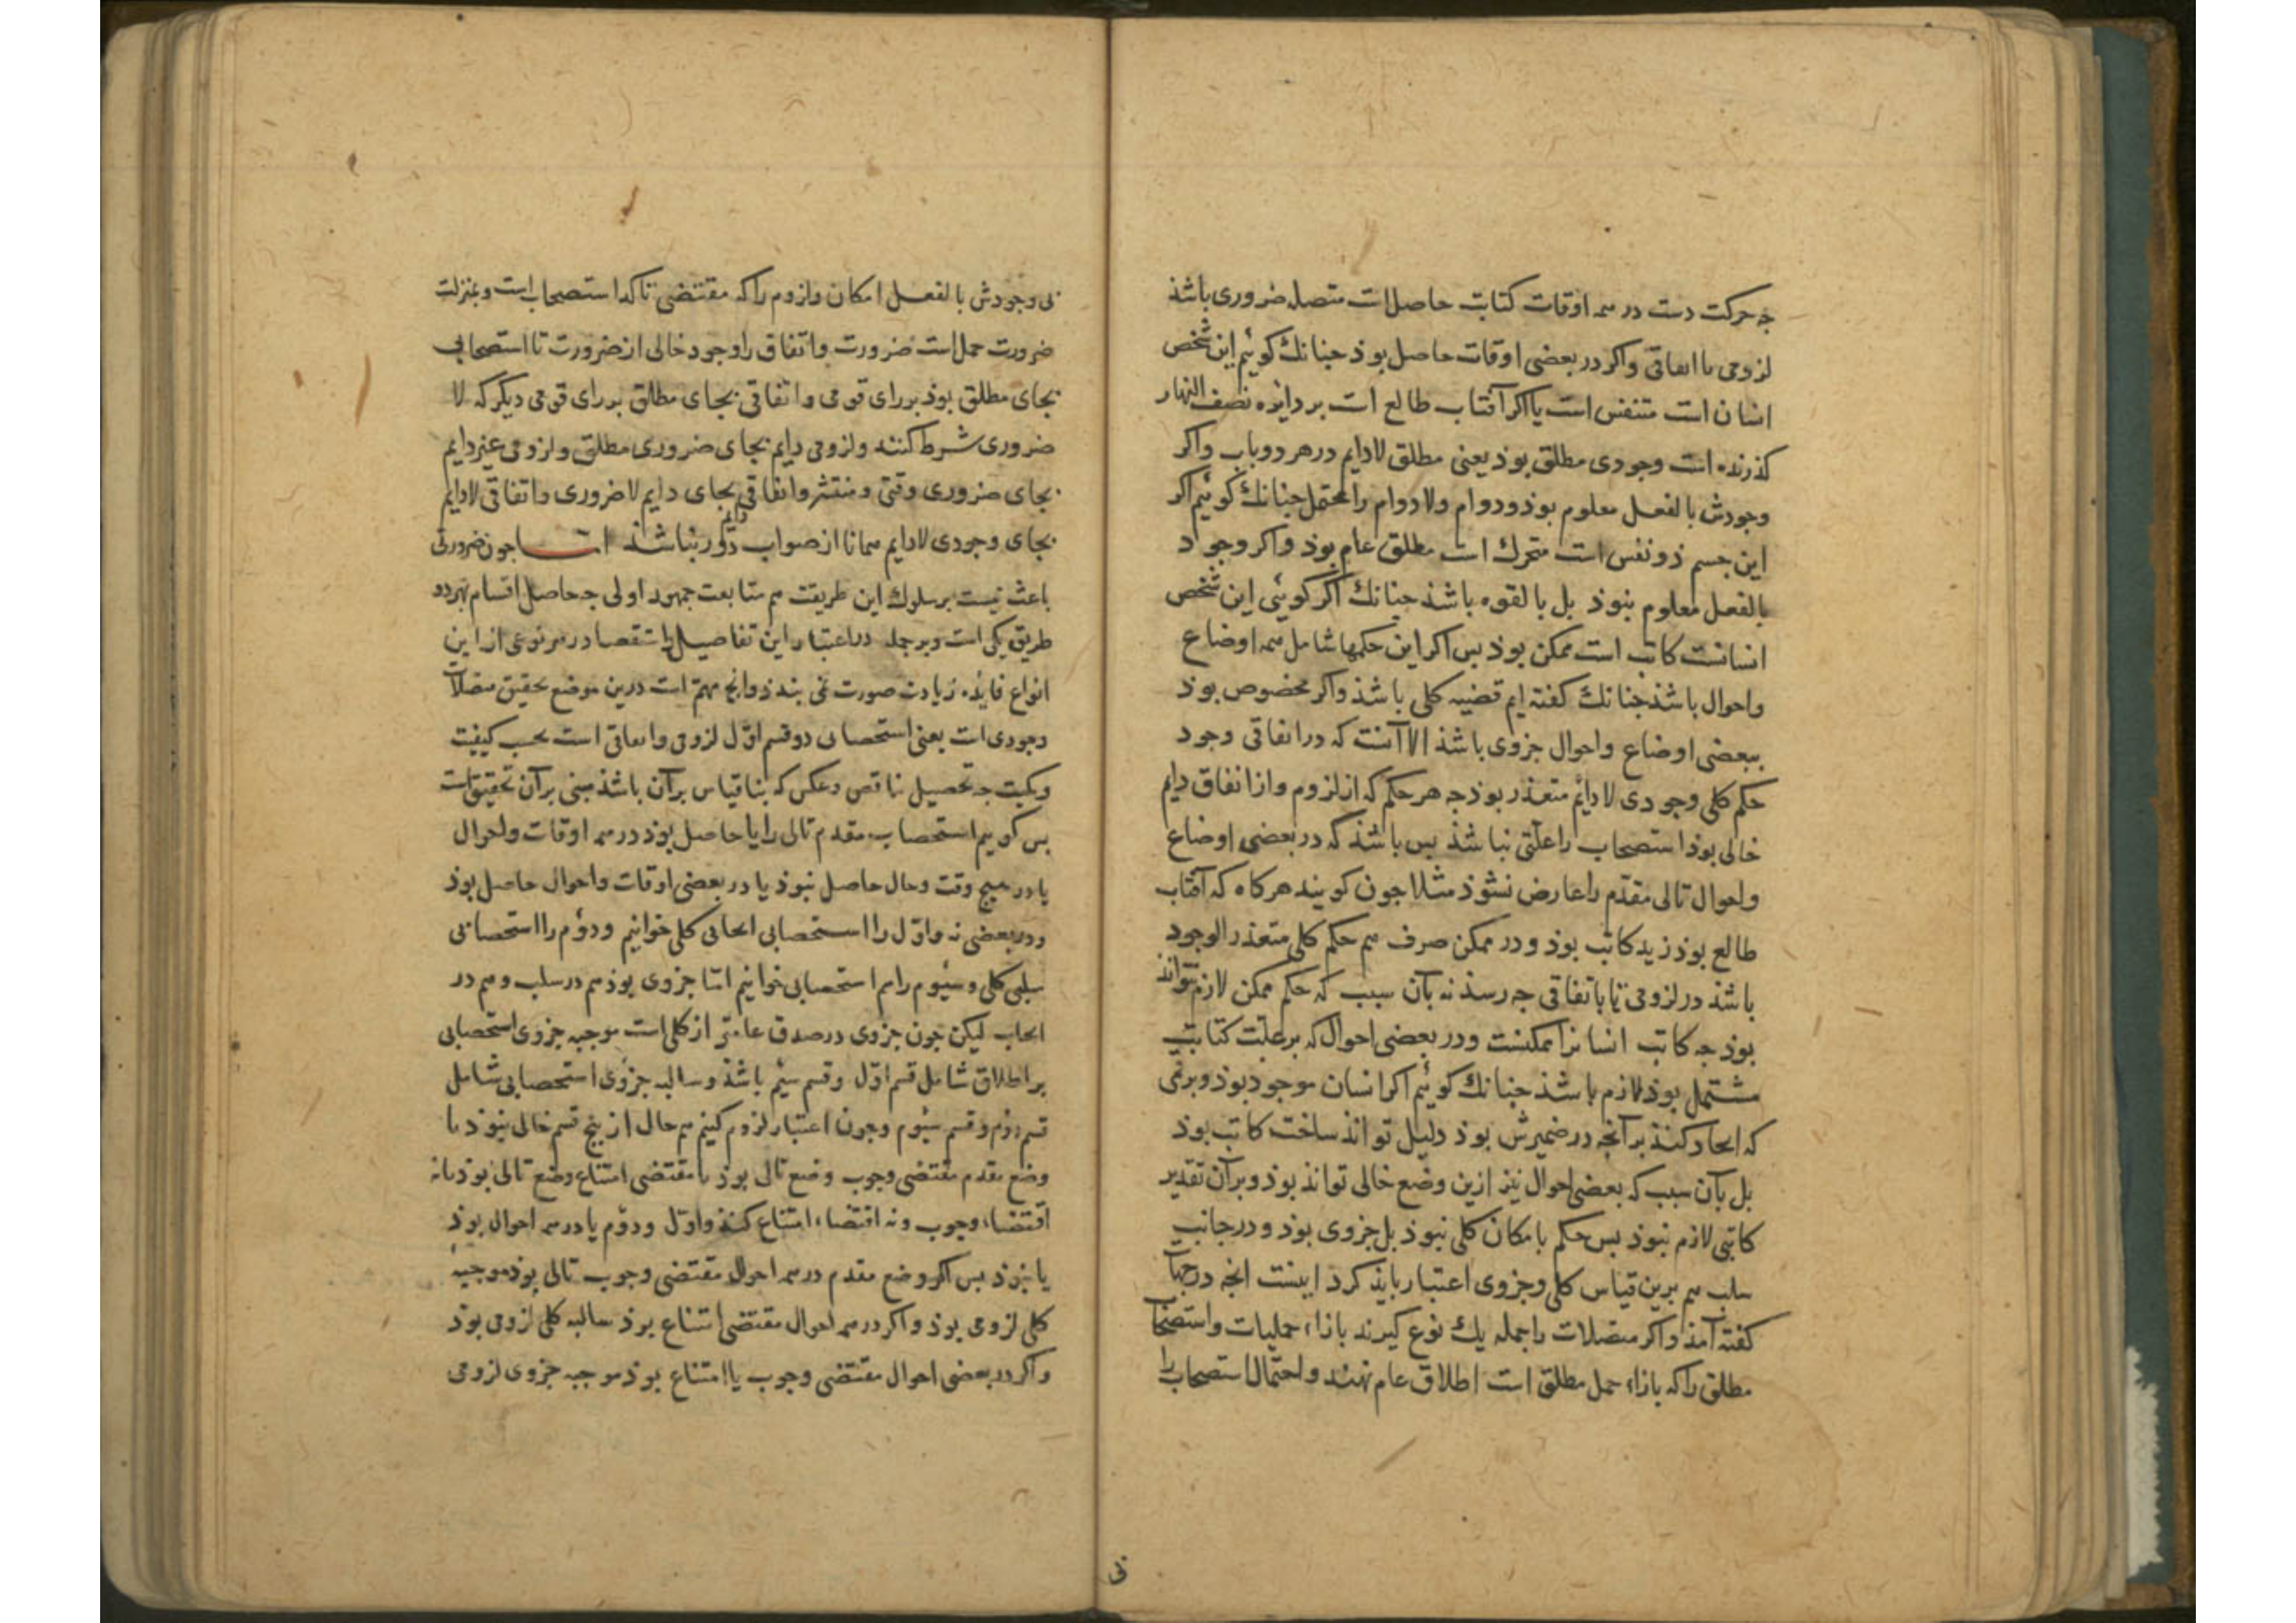 چه حرکت دست در همه اوقات کتابت حاصل است متصله ضروری باشذ
لزومی یا اتفاقی واکر در بعضی اوقات حاصل بوذ جنانك کوئیم این شخص
انسان است متنفس است یا اکر آفتاب طالع است بر دایره نصف النهار
کذرنده است وجودی مطلق بوذ یعنی مطلق لادایم در هر دو باب واکر
وجودش بالفعل معلوم بوذ ودوام ولادوام را محتمل جنانك کوئیم اکر
این جسم ذو نفس است متحرك است مطلق عام بوذ واکر وجود
بالفعل معلوم نبوذ بل بالقوه باشذ جنانك اکر کوئی این شخص
انسانست کاتب است ممکن بوذ بس اکر این حکمها شامل همه اوضاع
واحوال باشذ جنانك کفته ایم قضیه کلی باشذ واکر مخصوص بوذ
ببعضی اوضاع واحوال جزوی باشذ الا آنست که در اتفاقی وجود
حکم کلی وجودی لادائم متعذر بوذ جه هر حکم که از لزوم واز اتفاق دایم
خالی بوذ استصحاب را علتی نباشذ بس باشذ که در بعضی اوضاع
واحوال تالی مقدم را عارض نشوذ مثلا جون کویند هرکاه که آفتاب
طالع بوذ زید کاتب بوذ ودر ممکن صرف هم حکم کلی متعذر الوجود
باشذ در لزومی تا باتفاقی جه رسذ نه بآن سبب که حکم ممکن لازم نتواند
بوذ جه کاتب انسانرا ممکنست ودر بعضی احوال که بر علت کتابت
مشتمل بوذ لازم باشذ جنانك کوئیم اکر انسان موجود بوذ وبر نمی
که ایجاد کنذ بر آنجه در ضمیرش بوذ دلیل تواند ساخت کاتب بوذ
بل بآن سبب که بعضی احوال نیز ازین وضع خالی تواند بوذ وبر آن تقدیر
کاتبی لازم نبوذ بس حکم بامکان کلی نبوذ بل جزوی بوذ ودر جانب
سلب هم برین قیاس کلی وجزوی اعتبار بایذ کرد اینست انجه در جهات
کفته آمذ واکر متصلات را جمله یك نوع کیرند بازاء حملیات واستصحاب
مطلق را که بازاء حمل مطلق است اطلاق عام نهند واحتمال استصحاب را
بی وجودش بالفعل امکان ولزوم را که مقتضی تاکد استصحاب است وبمنزلت
ضرورت حمل است ضرورت واتفاق را وجود خالی از ضرورت تا استصحابی
بجای مطلق بوذ بر رای قومی واتفاقی بجای مطلق بر رای قومی دیکر که لا
ضروری شرط کنند ولزومی دایم بجای ضروری مطلق ولزومی غیر دایم
بجای ضروری وقتی ومنتشر واتفاقی دایم بجای دایم لاضروری واتفاقی لادایم
بجای وجودی لادایم همانا از صواب دور نباشذ اما جون ضرورتی
باعث نیست بر سلوك این طریقت هم متابعت جمهور اولی جه حاصل اقسام بهر دو
طریق یکی است وبر جمله در اعتبار این تفاصیل باستقصا در هر نوعی از این
انواع فایده زیادت صورت نمی بندذ وانچ مهم است درین موضع تحقیق متصلات
وجودی است یعنی استصحابی دو قسم اول لزومی واتفاقی است بحسب کیفیت
وکمیت جه تحصیل تناقض وعکس که بناء قیاس بر آن باشذ مبنی بر آن تحقیق است
بس کوییم استصحاب مقدم تالی را یا حاصل بوذ در همه اوقات واحوال
یا در هیچ وقت وحال حاصل نبوذ یا در بعضی اوقات واحوال حاصل بوذ
ودر بعضی نه واول را استصحابی ایجابی کلی خوانیم ودوم را استصحابی
سلبی کلی وسیوم را هم استصحابی خوانیم اما جزوی بوذ هم در سلب وهم در
ایجاب لیکن جون جزوی در صدق عامتر از کلی است موجبه جزوی استصحابی
بر اطلاق شامل قسم اول وقسم سیم باشذ وسالبه جزوی استصحابی شامل
قسم دوم وقسم سیوم وجون اعتبار لزوم کنیم هم حال از پنج قسم خالی نبوذ یا
وضع مقدم مقتضی وجوب وضع تالی بوذ یا مقتضی امتناع وضع تالی بوذ یا نه
اقتضاء وجوب ونه اقتضاء امتناع کنذ واول ودوم یا در همه احوال بوذ
یا نبوذ بس اکر وضع مقدم در همه احوال مقتضی وجوب تالی بوذ موجبه
کلی لزومی بوذ واکر در همه احوال مقتضی امتناع بوذ سالبه کلی لزومی بوذ
واکر در بعضی احوال مقتضی وجوب یا امتناع بوذ موجبه جزوی لزومی